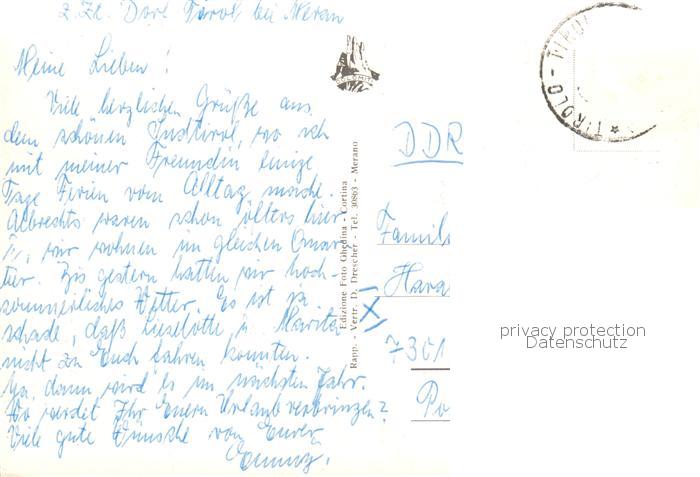 z. Zt. Dorf Tirol bei Meran
Meine Lieben!
Viele herzlichen Grüße aus
dem schönen Südtirol, wo ich
mit meiner Freundin einige
Tage Ferien vom Alltag mache.
Albrechts waren schon öfters hier
u. wir wohnen im gleichen Quar-
tier. Bis gestern hatten wir hoch-
sommerliches Wetter. Es ist ja
schade, daß Lieselotte u. Marita
nicht zu Euch fahren konnten.
Na, dann wird es im nächsten Jahr.
Wo werdet Ihr Euern Urlaub verbringen?
Viele gute Wünsche von Eurer
DOLOMITI
Edizione Foto Ghedina - Cortina
Rapp. - Vertr. D. Drescher - Tel. 30803 - Merano
TIROLO - TIROL
DDR
Famil
Hara
X
7301
Po
privacy protection
Datenschutz